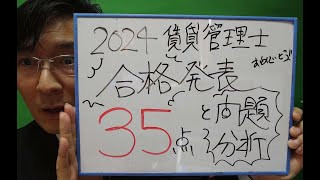 2024 賃貸管理士
おめでとう!
合格発表
35点
と問題
分析